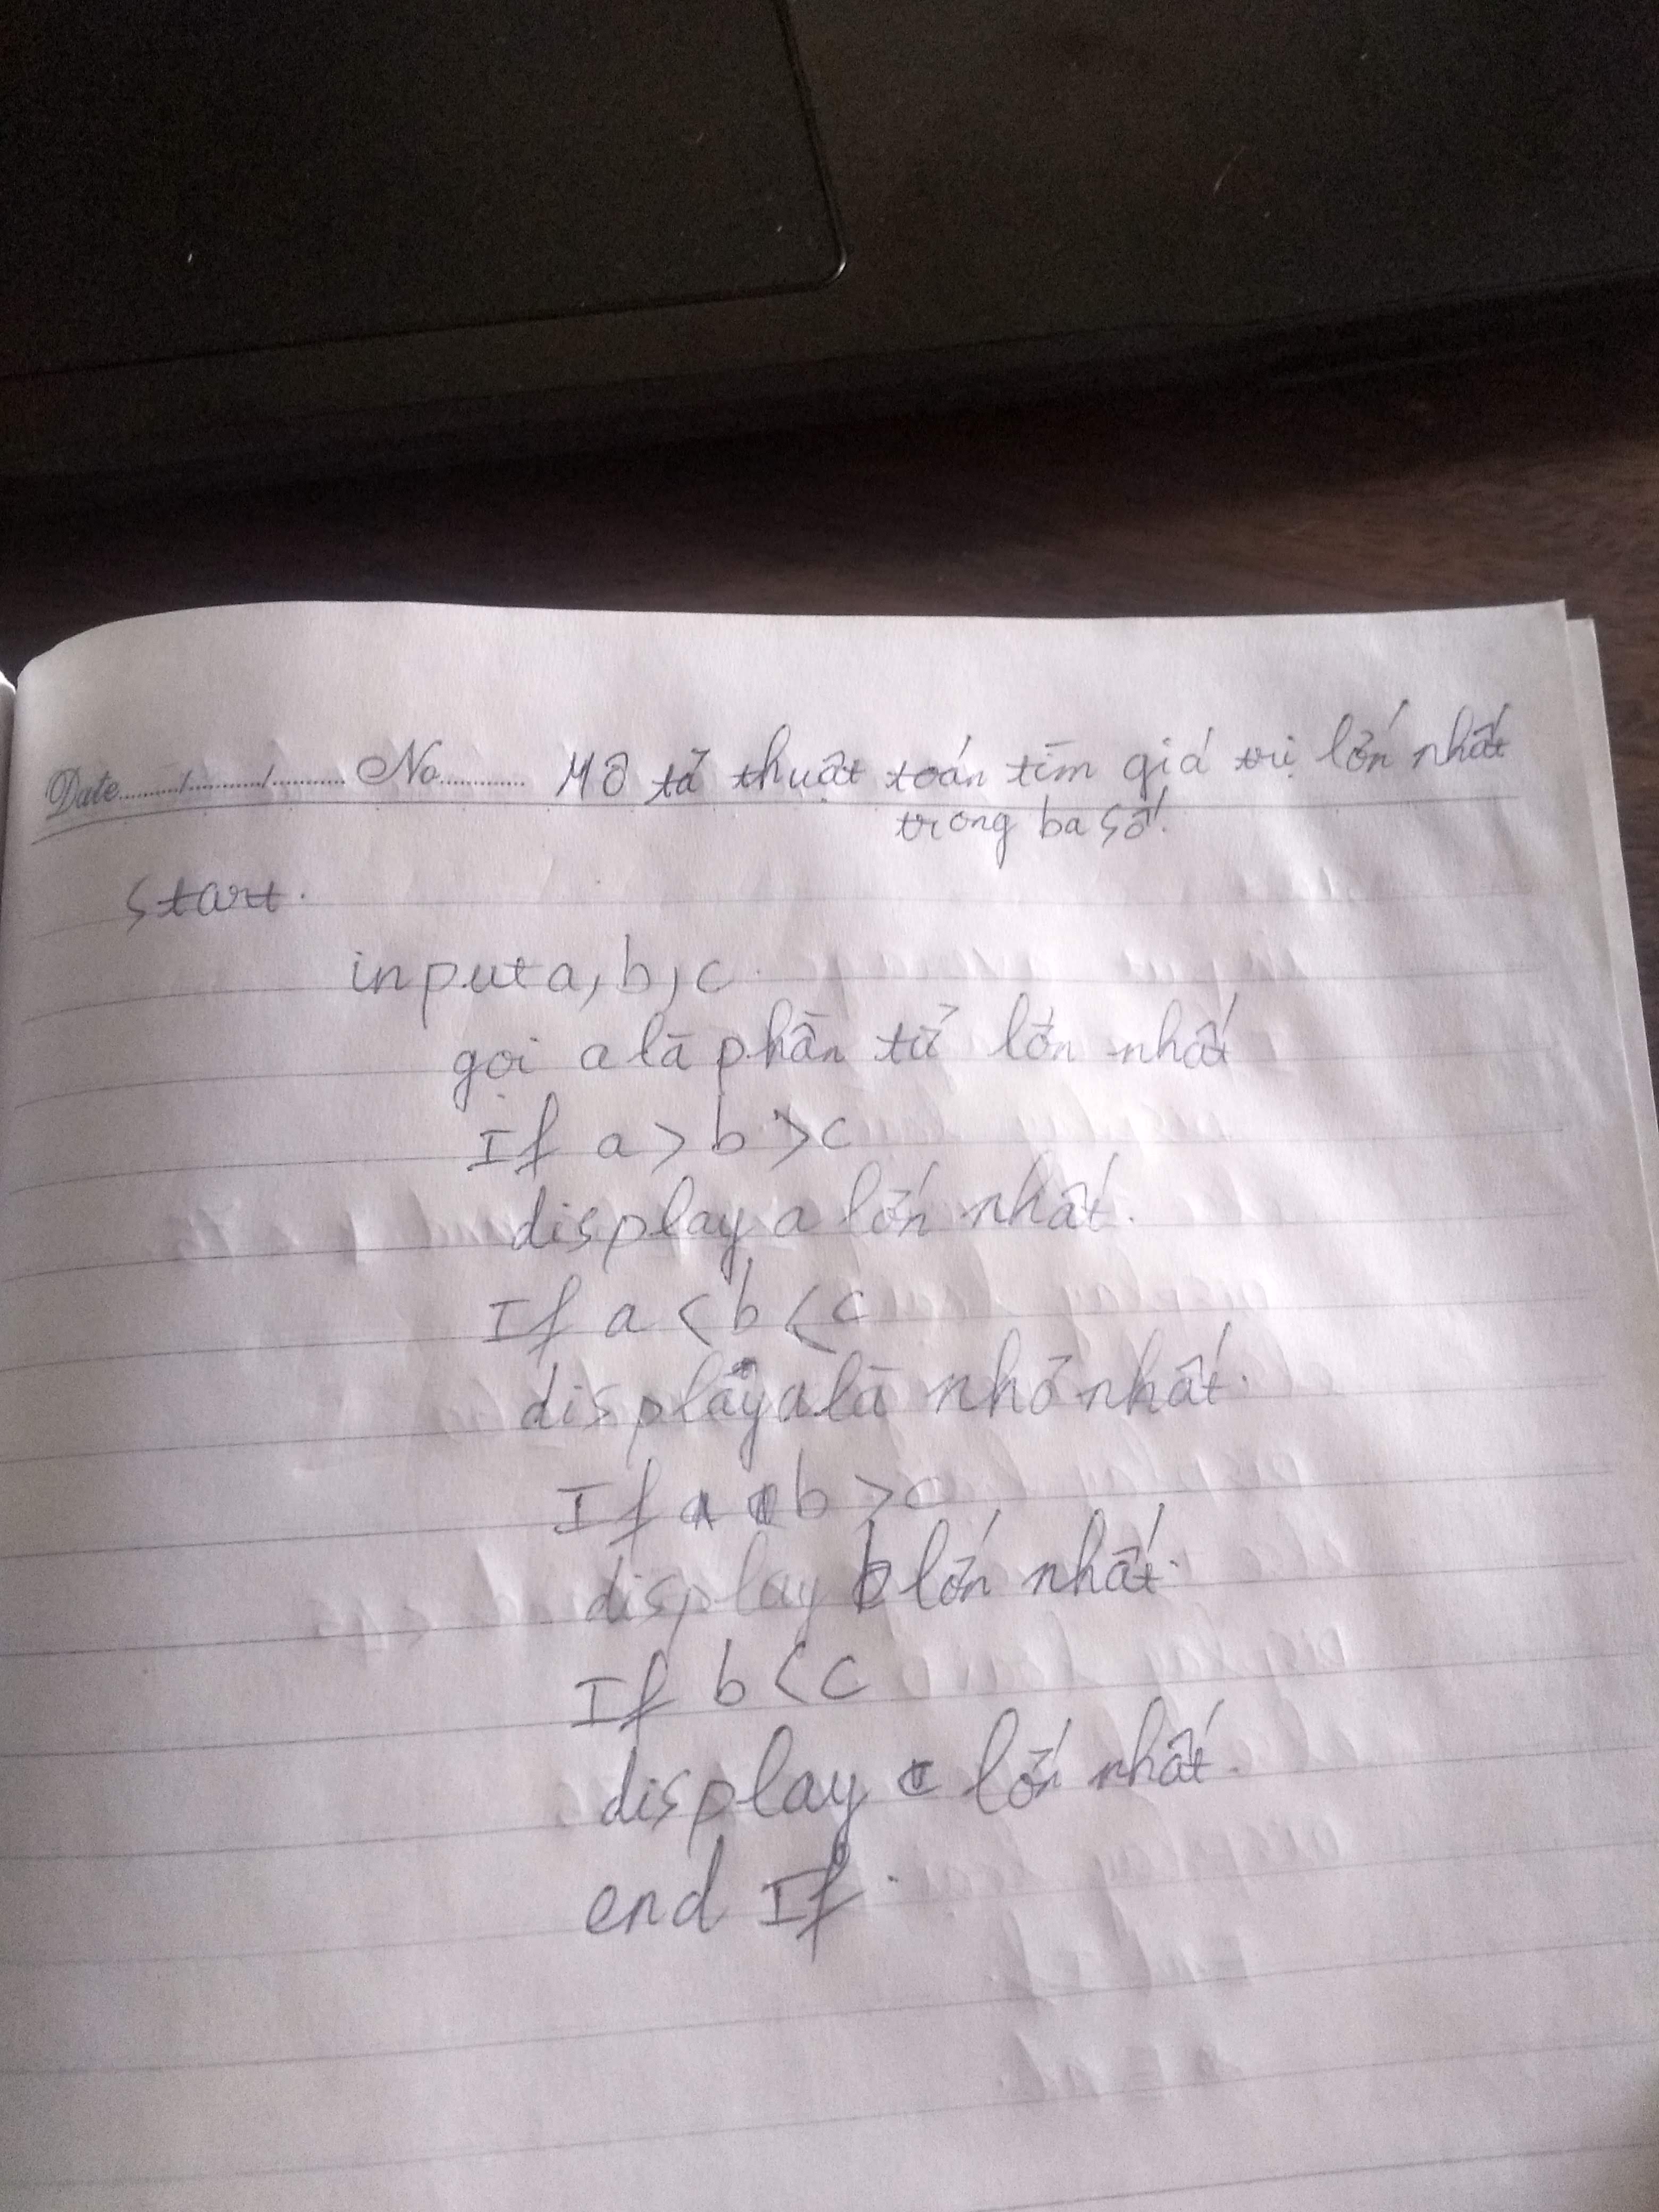 Date......./......./....... No.......... Mô tả thuật toán tìm giá trị lớn nhất
trong ba số.
Start.
input a, b, c.
gọi a là phần tử lớn nhất
If a > b > c
display a lớn nhất.
If a < b < c
display a là nhỏ nhất.
If b > c
display b lớn nhất.
If b < c
display c lớn nhất.
end If.